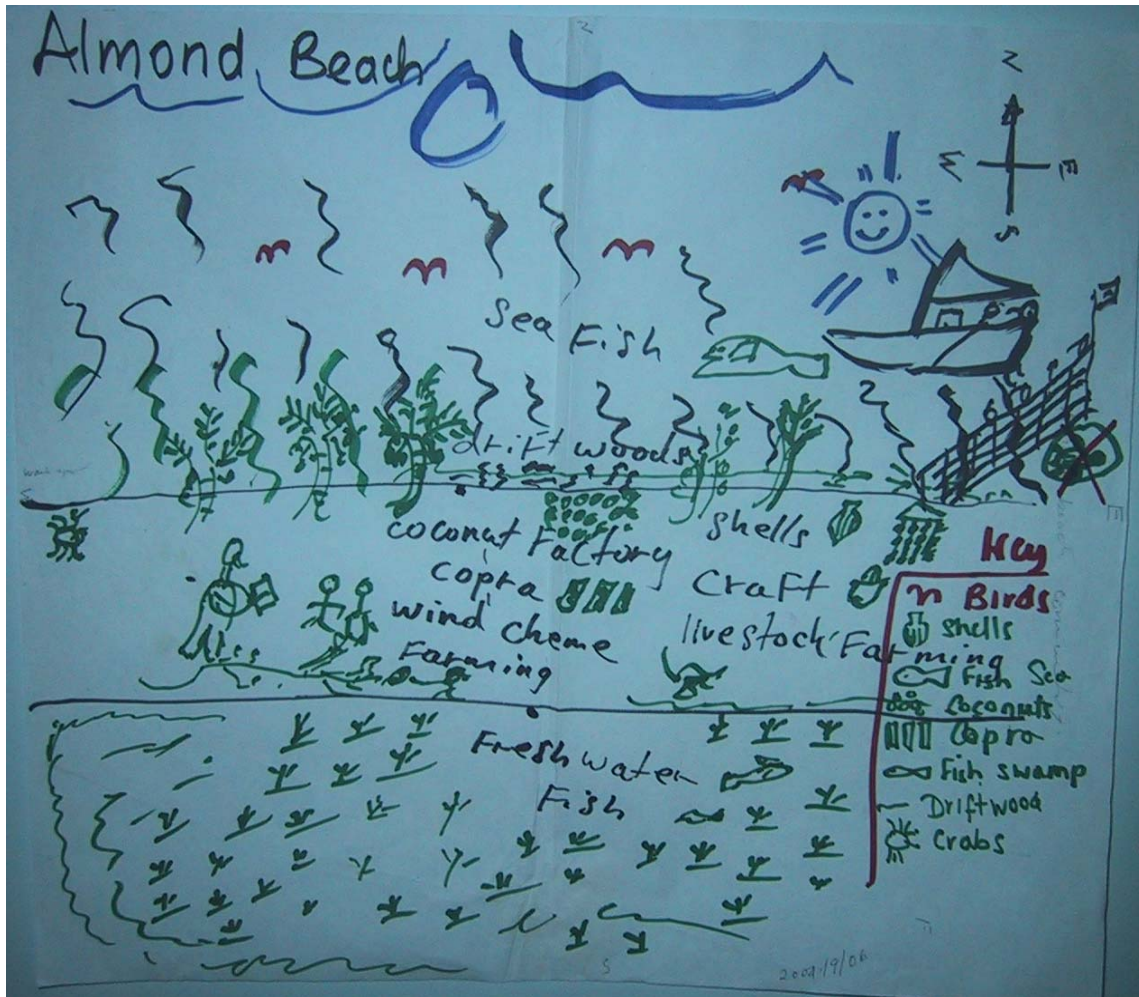 Almond Beach
N
N
W E
S
Sea Fish
drift woods
Coconut Factory
Shells
Copra
Craft
wind cheme
livestock Farming
Farming
Fresh water
Fish
Key
n Birds
Shells
Fish Sea
Coconuts
Copra
Fish swamp
Driftwood
Crabs
E
S